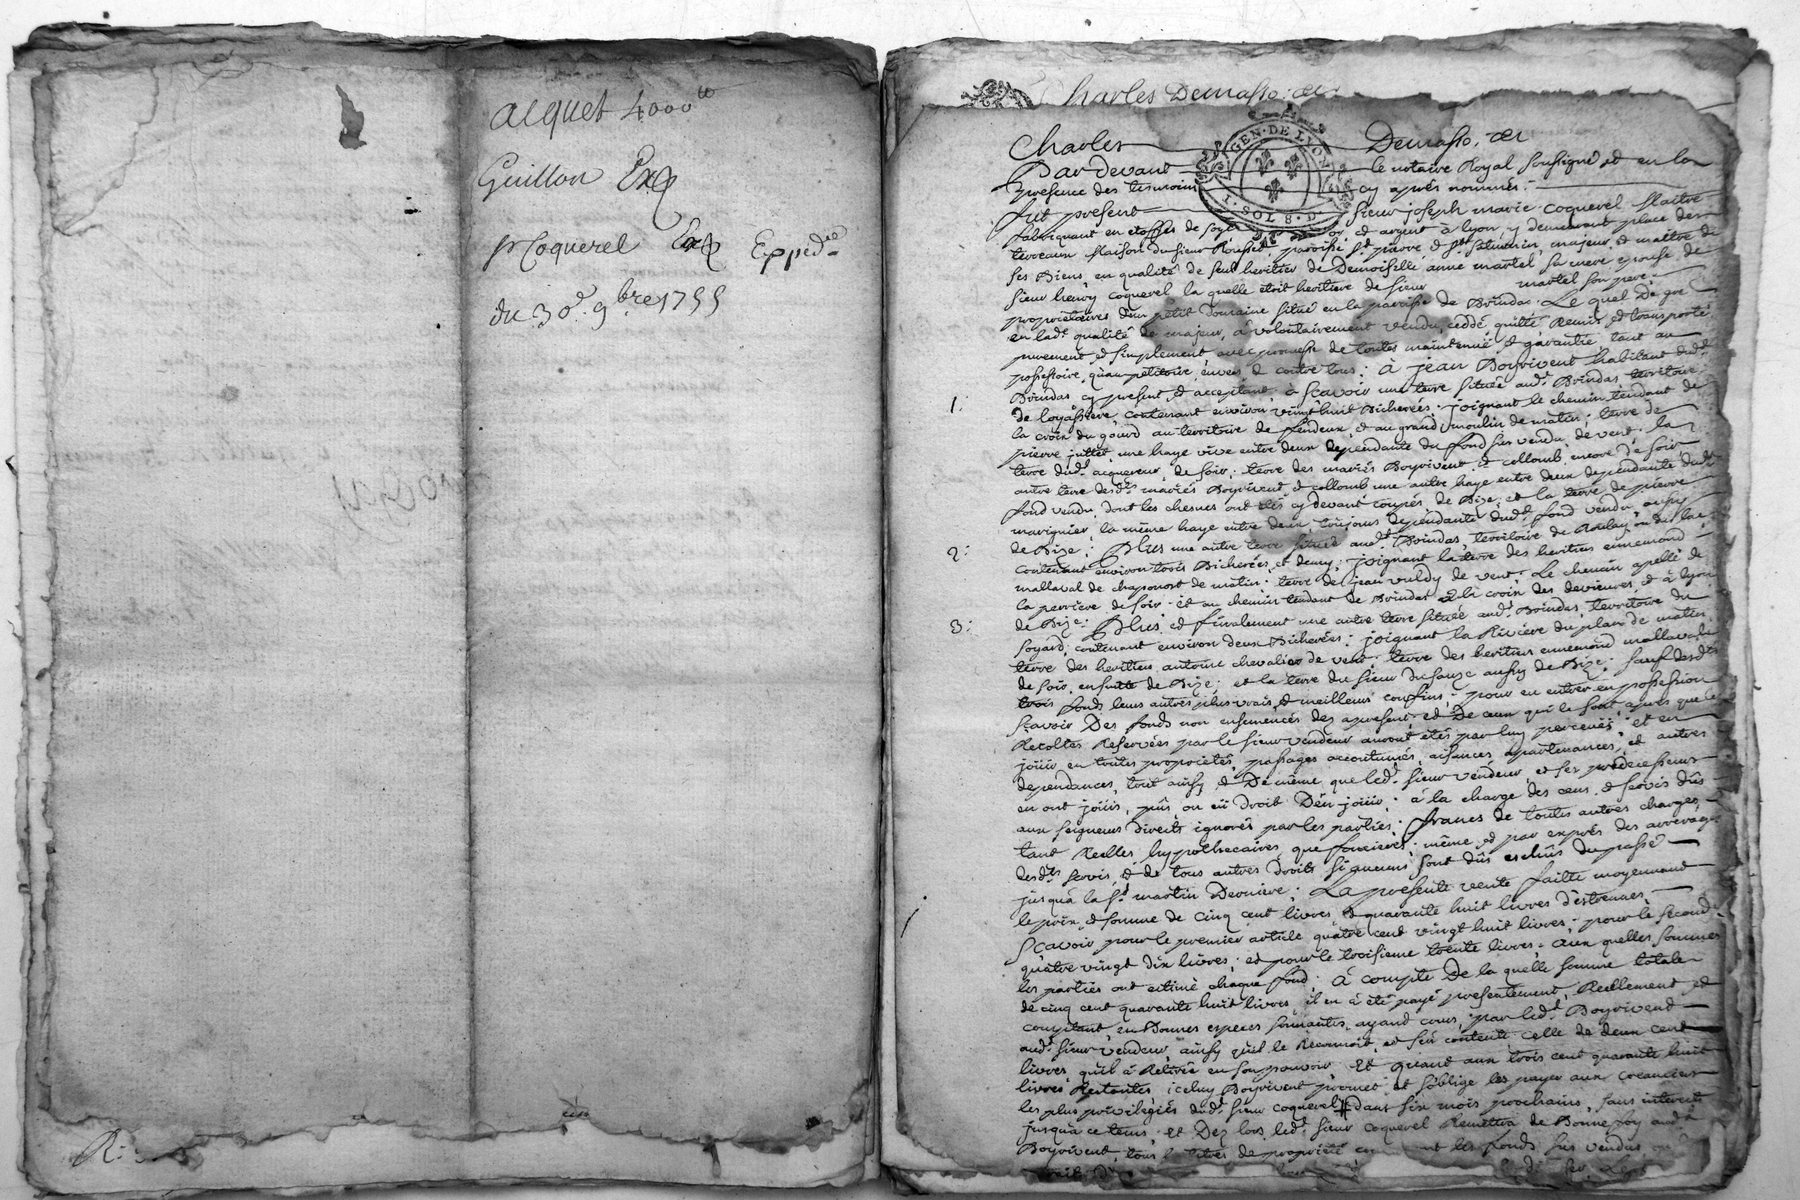 acquet 4000tt
Guillon Exp
pr Coquerel Exp Expédiée
du 30e 9bre 1755
R:
Charles Demasso &c
GEN. DE LYON
1. SOL 8. D.
Charles Demasso, &c
Pardevant le notaire Royal soussigné et en la
presence des tesmoins cy après nommés:
fut present sieur joseph marie coquerel Maitre
fabriquant en etoffes de soye or, et argent à lyon, y demeurant place des
terreaux Maison du sieur Rousset, paroisse st pierre et st saturnin, majeur, et maitre de
ses Biens, en qualité de seul heritier de Demoiselle anne martel sa mere epouse de
sieur henry coquerel la quelle étoit heritiere de sieur martel son pere
proprietaires d'un petit Domaine situé en la parroisse de Brindas. Le quel De gré
en ladte qualité de majeur, à volontairement vendu, ceddé, quitté, Remis, et transporté
purement et simplement, avec promesse de toutes maintenüe et garantie, tant au
possessoire, qu'au petitoire envers et contre tous; à jean Boyrivent habitant dudt
Brindas cy present, et acceptant, à sçavoir une terre située audt Brindas territoire
1: de contenant environ vingt huit Bicherées; joignant le chemin tendant de
la croix du gourd au territoire de et au grand moulin de matin; terre de
pierre juttet, une haye vive entre deux dependante du fond sus vendu de vent. la
terre dudt acquereur de soir; terre des mariés Boyrivent, et collomb encore de soir
autre terre desdts mariés Boyrivent et collomb une autre haye entre deux dependante dudt
fond vendu, dont les chesnes ont étés cy devant coupés, de Bize; et la terre de pierre
marignier la même haye entre deux toujours dependante dudt fond vendu aussy
2: de Bize; Plus une autre terre située audt Brindas, territoire de
contenant environ trois Bicherées, et demy; joignant la terre des heritiers ennemond
mallaval de chaponost de matin; terre de jean de vent. Le chemin apellé de
la perriere de soir et au chemin tendant de Brindas à la croix des et à lyon
3: de Bize; Plus et finalement une autre terre située audt Brindas, territoire du
soyard, contenant environ deux Bicherées; joignant la Riviere du plan de matin
terre des heritiers antoine chevalier de vent; terre des heritiers ennemond mallaval
de soir, ensuitte de Bize; et la terre du sieur aussy de Bize; sauf desdts
trois fonds leurs autres plus vrais, et meilleurs confins; pour en entrer en possession
sçavoir Des fonds non ensemencés des apresent; et De ceux qui le sont après que les
Recoltes Reservées par le sieur vendeur auront étés par luy perceües; et en
joüir en toutes proprietés, passages accoutumés, aisances, apartenances, et autres
dependances, tout ainsy, et De même que ledt sieur vendeur, et ses predecesseurs
en ont joüis, pûs, ou eü droit D'en joüir; à la charge des cens, et servis dûs
aux seigneurs directs ignorés par les parties; francs de toutes autres charges
tant Reelles hypothecaires, que foncieres; même, et par exprés des arrerages
desdts servis et de tous autres Droits signeuriaux dûs echûs du passé
jusqu'à la st martin Derniere; La presente vente faitte moyennant
le prix, et somme de cinq cent livres, et quarante huit livres d'estrenes,
sçavoir pour le premier article quatre cent vingt huit livres; pour le second
quatre vingt dix livres; et pour le troisieme trente livres. Aux quelles sommes
les parties ont estimé chaque fond; à compte De la quelle somme totale
de cinq cent quarante huit livres, il en à été payé presentement, Reellement et
comptant en Bonnes especes sonnantes, ayand cours, par ledt Boyrivent
audt sieur vendeur, ainsy qu'il le Reconnoit, et s'en contente celle de deux cent
livres qu'il à Retirée en son pouvoir. et quant aux trois cent quarante huit
livres Restantes, iceluy Boyrivent promet et s'oblige les payer aux creanciers
les plus privilegiés dudt sieur coquerel dans six mois prochains, sans interets
jusqu'à ce tems. et Dez lors ledt sieur coquerel Remettra de Bonne foy audt
Boyrivent, tous les titres de proprieté les fonds sus vendus